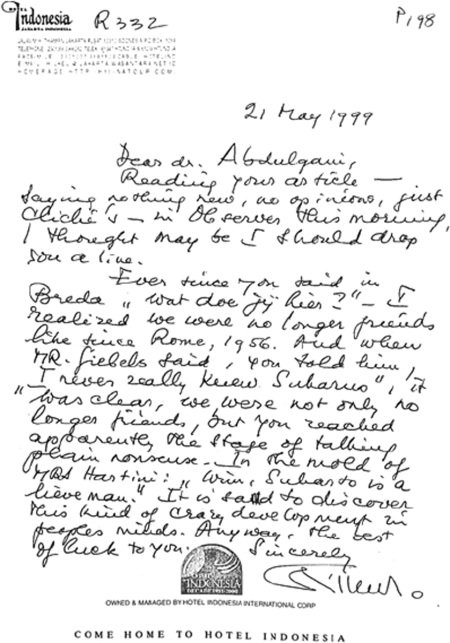 Hotel Indonesia
JAKARTA INDONESIA
R 332
P, 98
21 May 1999
Dear dr. Abdulgani,
Reading your article —
saying nothing new, no opinions, just
cliché's — in Observer this morning,
I thought may be I should drop
you a line.
Ever since you said in
Breda „Wat doe jij hier?" — I
realized we were no longer friends
like since Rome, 1956. And when
MR. Giebels said, you told him,
„I never really knew Sukarno", it
was clear, we were not only no
longer friends, but you reached
apparently the stage of talking
plain nonsense. In the mold of
MRS Hartini: „Wim, Suharto is a
lieve man." It is sad to discover
this kind of crazy development in
peoples minds. Anyway, the best
of luck to you. Sincerely
HOTEL INDONESIA
DECADE 1991-2000
OWNED & MANAGED BY HOTEL INDONESIA INTERNATIONAL CORP
COME HOME TO HOTEL INDONESIA